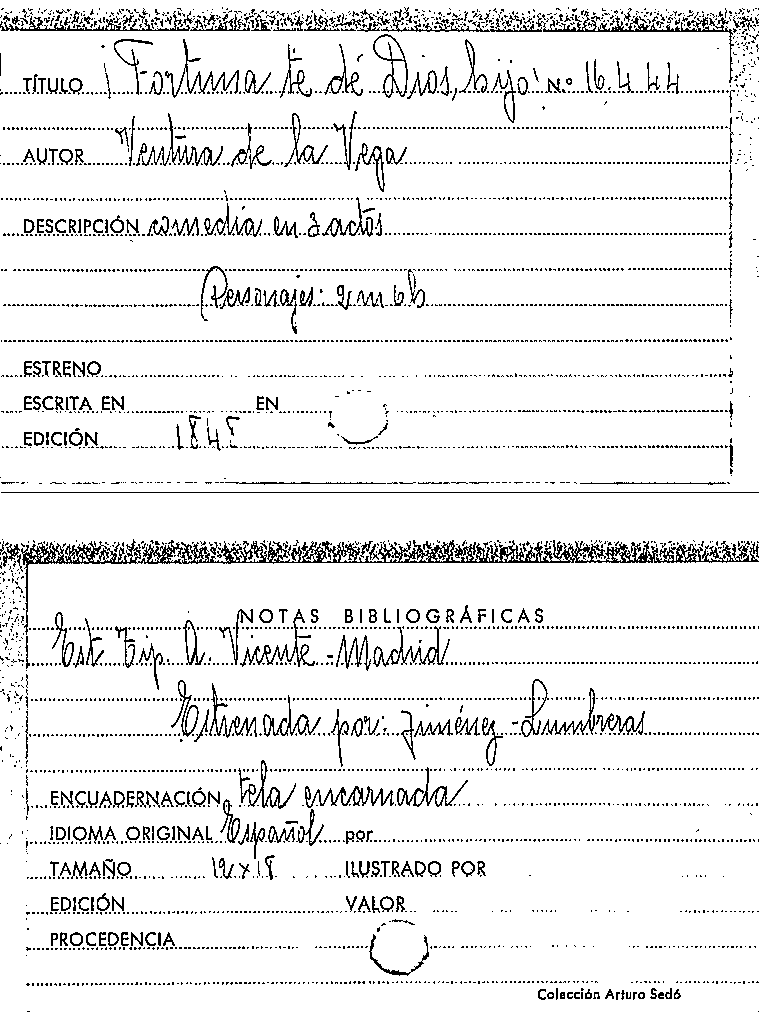 TÍTULO ¡Fortuna te dé Dios, hijo! N.º 16.444
AUTOR Ventura de la Vega
DESCRIPCIÓN comedia en 3 actos
Personajes: 2 m 6 h
ESTRENO
ESCRITA EN EN
EDICIÓN 1848
NOTAS BIBLIOGRÁFICAS
Est. Tip. A. Vicente - Madrid
Estrenada por: Jiménez - Lumbreras
ENCUADERNACIÓN tela encarnada
IDIOMA ORIGINAL Español por
TAMAÑO 12 x 18 ILUSTRADO POR
EDICIÓN VALOR
PROCEDENCIA
Colección Arturo Sedó